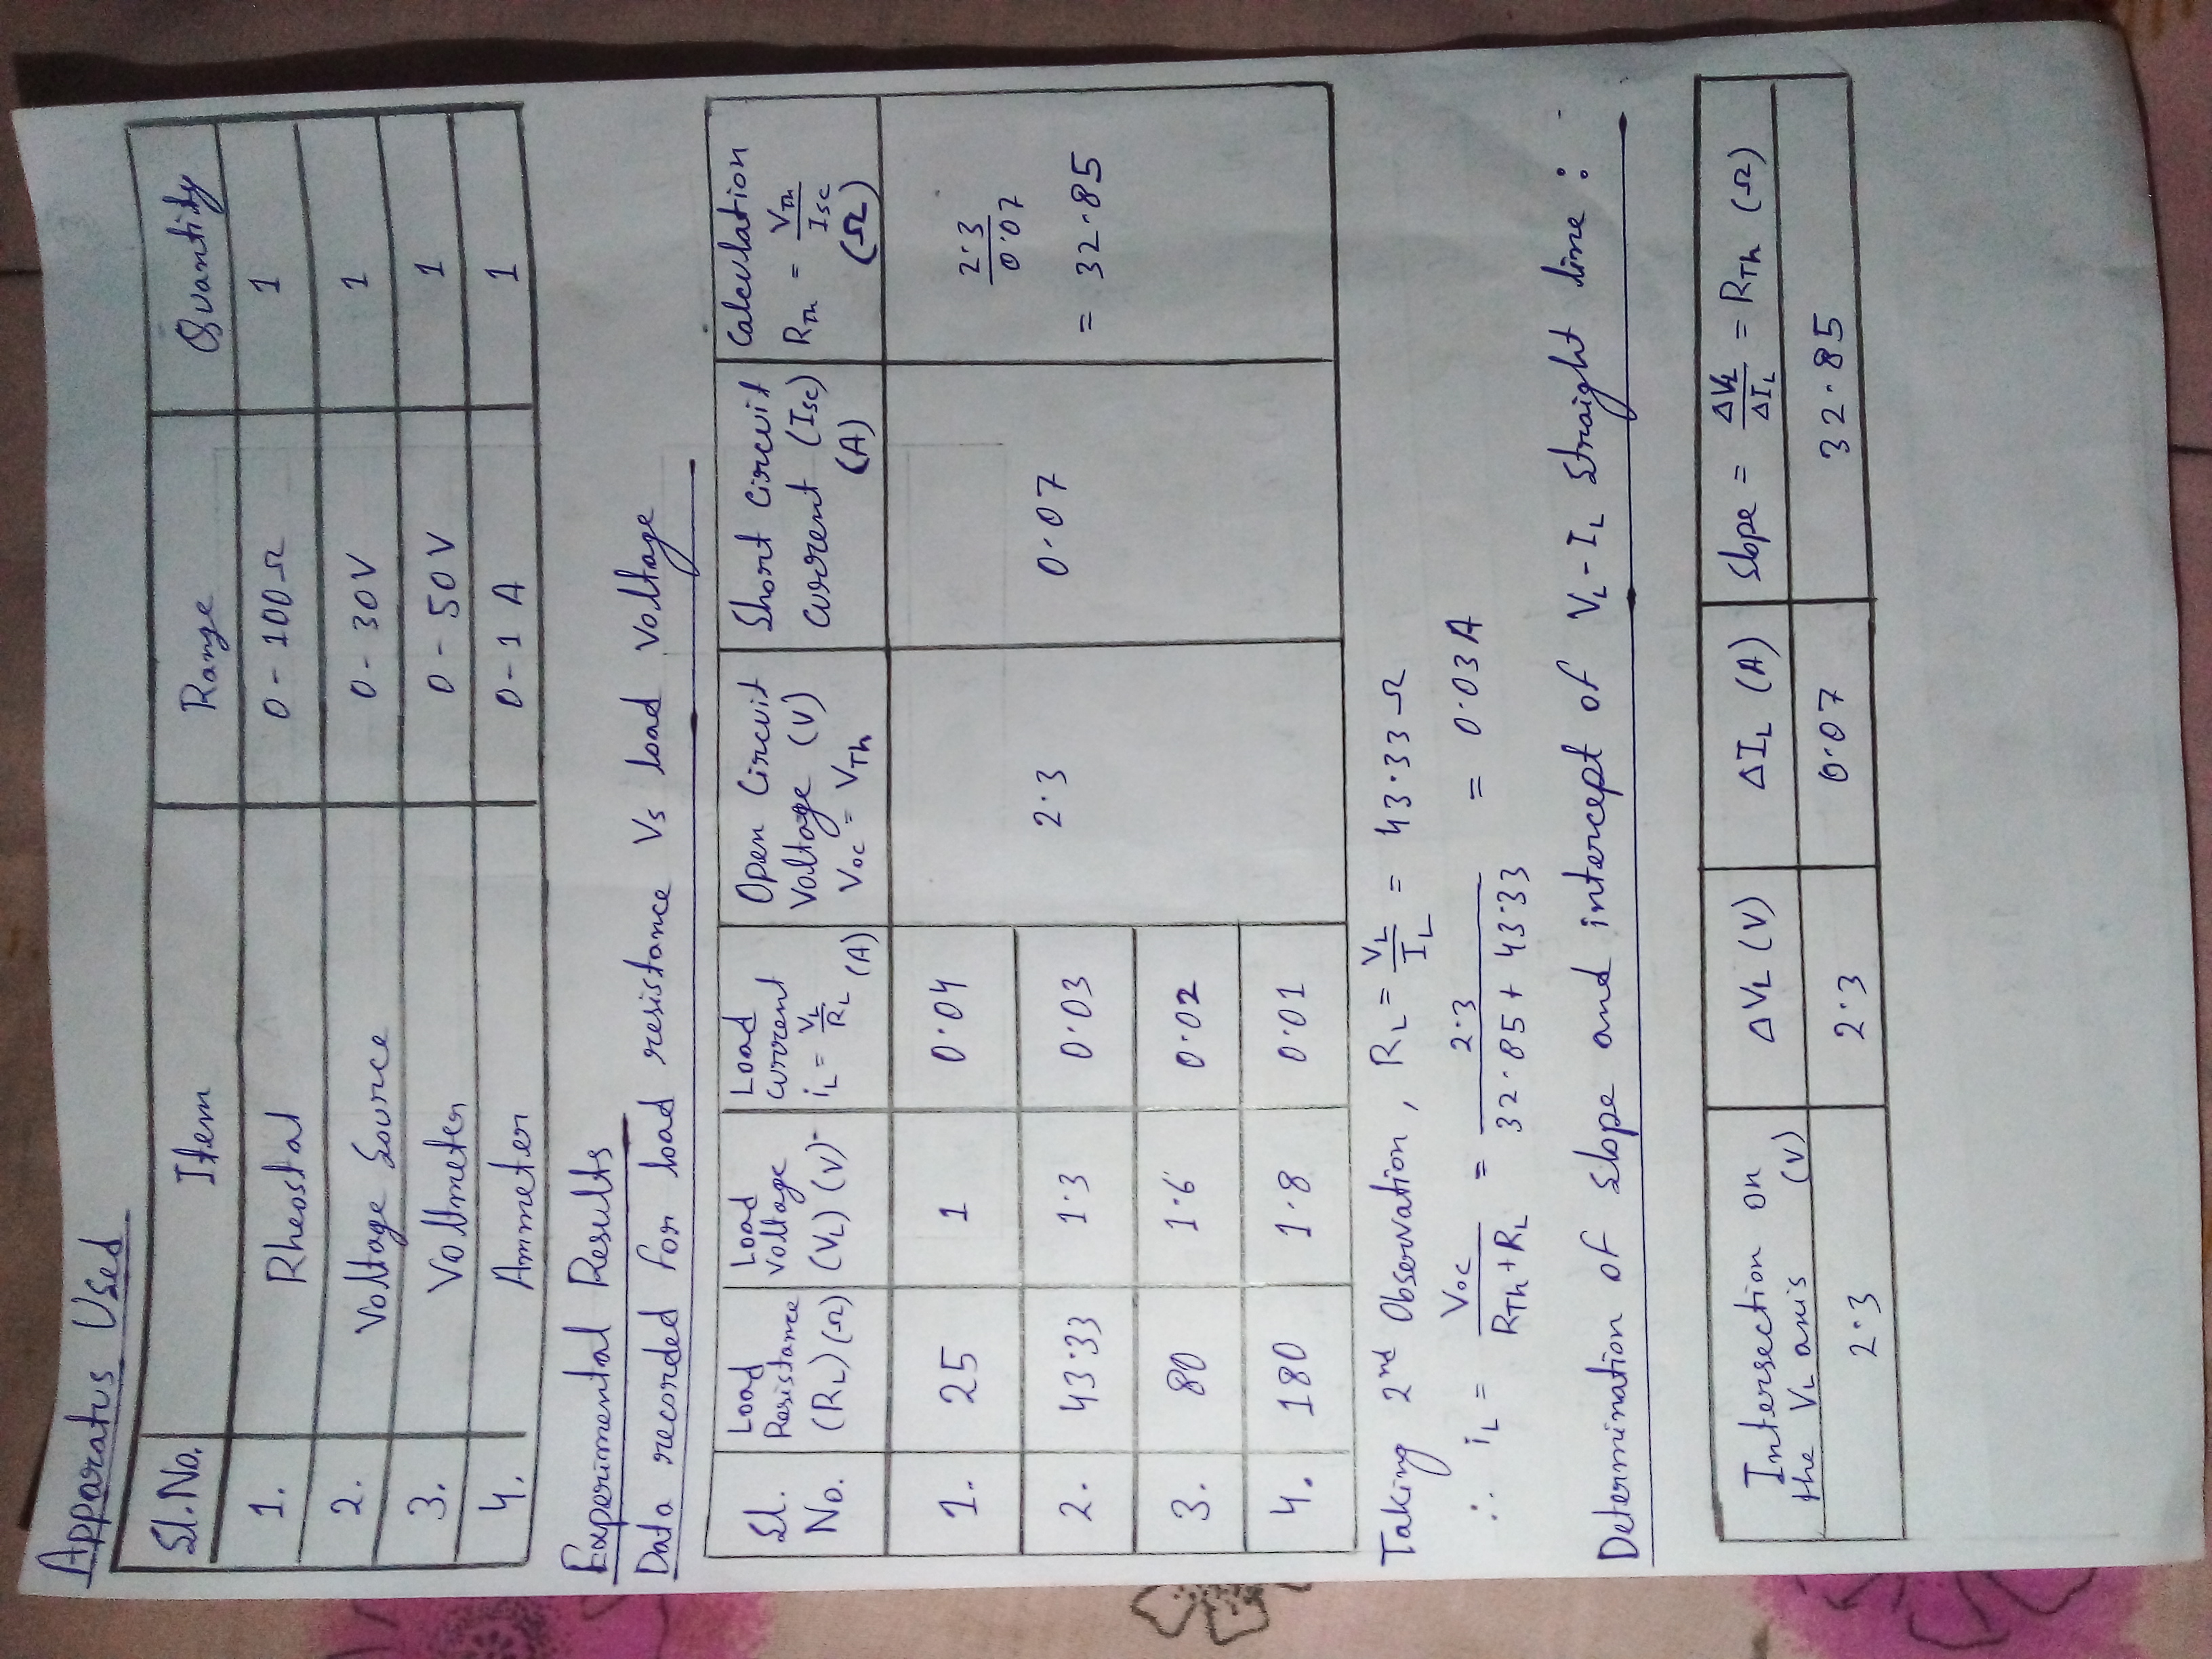 Apparatus Used
Sl. No. Item Range Quantity
1. Rheostat 0 - 100 Ω 1
2. Voltage Source 0 - 30 V 1
3. Voltmeter 0 - 50 V 1
4. Ammeter 0 - 1 A 1
Experimental Results
Data recorded for load resistance Vs load voltage
Sl. No. Load Resistance (RL) (Ω) Load Voltage (VL) (V) Load current iL = VL/RL (A) Open Circuit Voltage (V) Voc = VTh Short Circuit current (Isc) (A) Calculation RTh = VTh/Isc (Ω)
1. 25 1 0.04
2. 43.33 1.3 0.03 2.3 0.07 2.3/0.07 = 32.85
3. 80 1.6 0.02
4. 180 1.8 0.01
Taking 2nd Observation, RL = VL/IL = 43.33 Ω
∴ iL = Voc/(RTh + RL) = 2.3/(32.85 + 43.33) = 0.03 A
Determination of slope and intercept of VL - IL straight line :
Intersection on the VL axis (V) ΔVL (V) ΔIL (A) Slope = ΔVL/ΔIL = RTh (Ω)
2.3 2.3 0.07 32.85